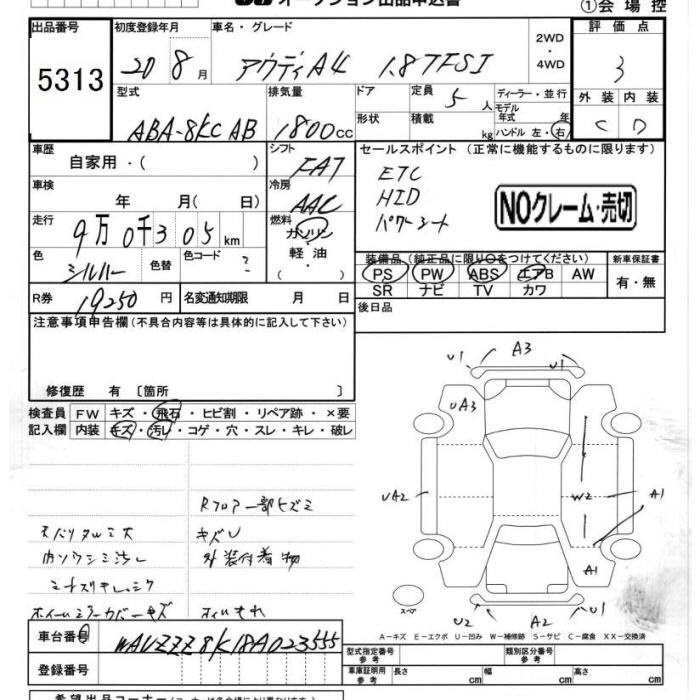 オークション出品申込書 ①会場控
出品番号 初度登録年月 車名・グレード 評価点
5313 20 8月 アウディA4 1.8TFSI 2WD・4WD 3
型式 排気量 ドア 定員 5人 ディーラー・並行 外装 内装
ABA-8KCAB 1800cc 形状 積載 kg モデル年式 年 ハンドル 左・右 C D
車歴 自家用・( ) シフト FAT セールスポイント (正常に機能するものに限ります)
車検 年 月( 日) 冷房 AAC ETC
HID
パワーシート
NOクレーム・売切
走行 9万0千305km 燃料 ガソリン・軽油・
色 シルバー 色替 色コード ?
装備品(純正品に限り○をつけてください) 新車保証書
PS PW ABS エアB AW 有・無
SR ナビ TV カワ
R券 19250円 名変通知期限 月 日
後日品
注意事項申告欄(不具合内容等は具体的に記入して下さい)
修復歴 有 〔箇所 〕
検査員記入欄 FW キズ・飛石・ヒビ割・リペア跡・×要
内装 キズ・汚レ・コゲ・穴・スレ・キレ・破レ
Rフロア一部ヒズミ
キズU
外装付着物
U1 A3 U1
UA3
UA2 W2 A1
A1
スペア
U2 A2 U1
A−キズ E−エクボ U−凹み W−補修跡 S−サビ C−腐食 XX−交換済
車台番号 WAUZZZ8K18A023555
型式指定番号 参考 類別区分番号 参考
登録番号 車庫証明用 参考 長さ cm 幅 cm 高さ cm
希望出品コーナー